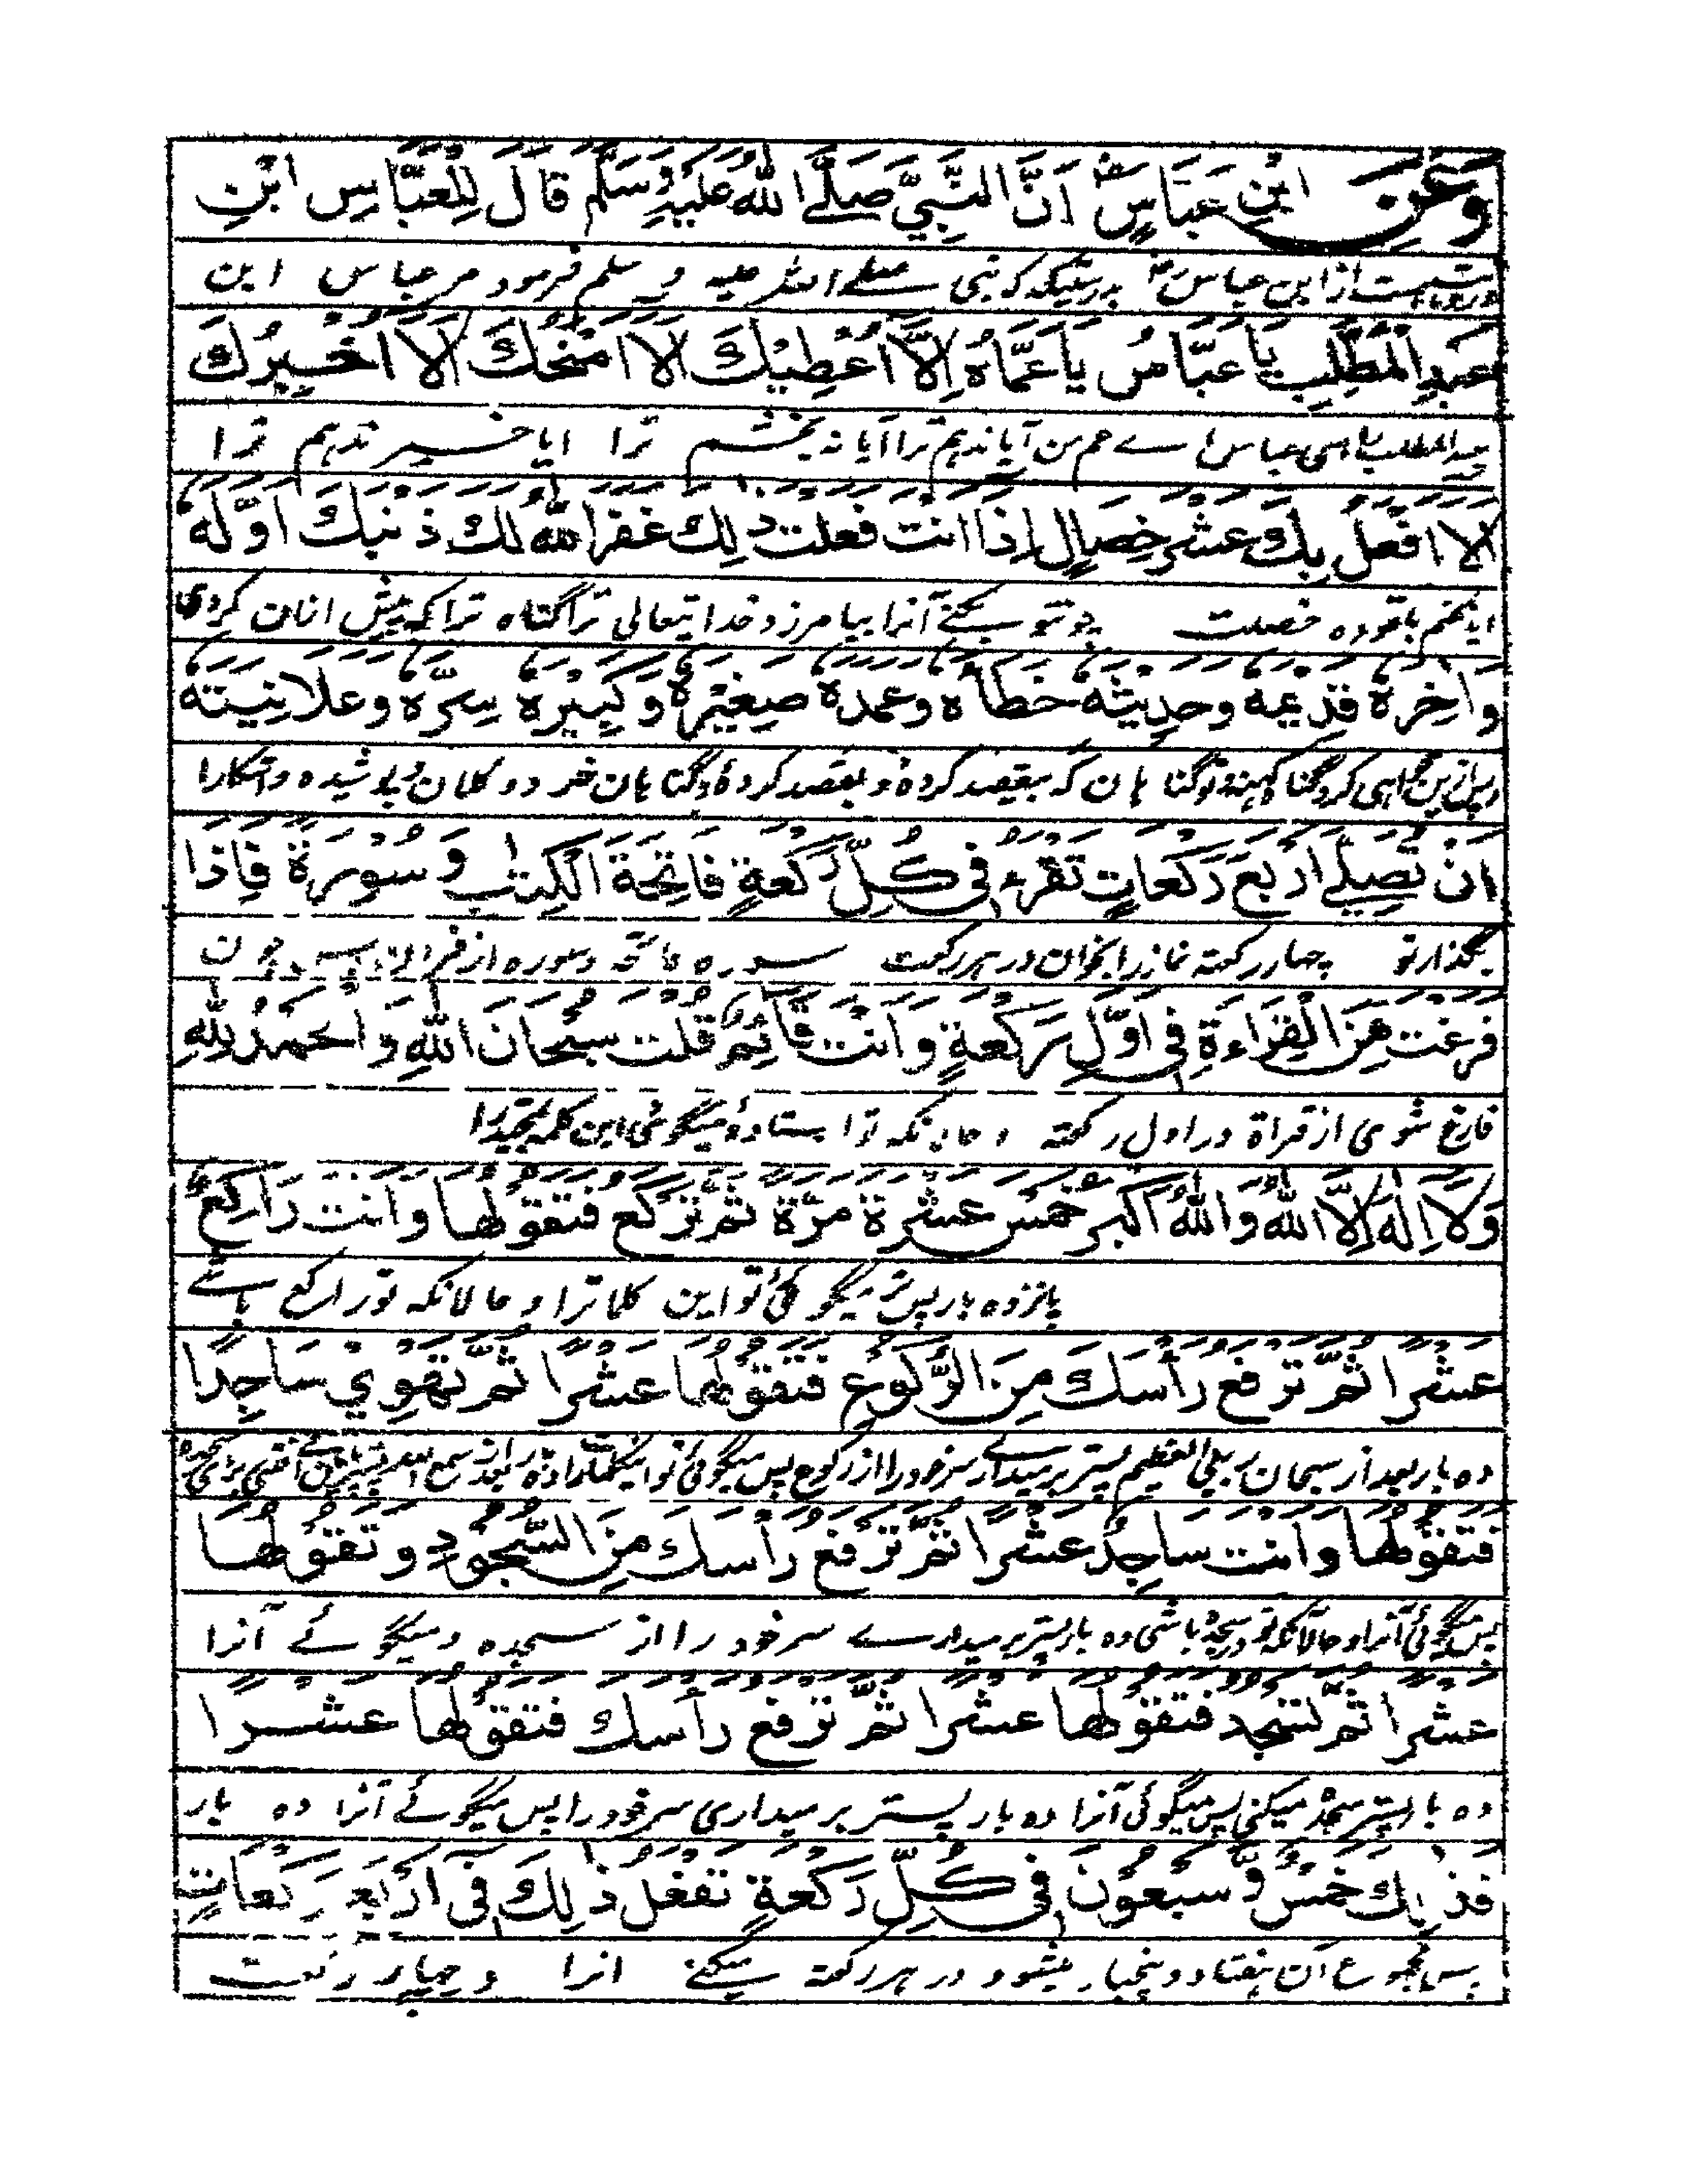 وَعَنِ ابْنِ عَبَّاسٍ رض اَنَّ النَّبِيَّ صَلَّے اللّٰهُ عَلَيْهِ وَسَلَّمَ قَالَ لِلْعَبَّاسِ ابْنِ
روایتست از ابن عباس رض بدرستیکه که نبی صلے الله علیه و سلم فرمود مر عباس ابن
عَبْدِ الْمُطَّلِبِ يَا عَبَّاسُ يَا عَمَّاهُ اَلَا اُعْطِيْكَ اَلَا اَمْنَحُكَ اَلَا اُخْبِرُكَ
عبدالمطلب را ای عباس اے عم من آیا ندهم ترا آیا نه بخشم ترا ایا خبر ندهم ترا
اَلَا اَفْعَلُ بِكَ عَشْرَ خِصَالٍ اِذَا اَنْتَ فَعَلْتَ ذٰلِكَ غَفَرَ اللّٰهُ لَكَ ذَنْبَكَ اَوَّلَهُ
ایا نکنم باتو ده خصلت چو تو بکنے آنرا بیامرزد خدا یتعالی ترا گناه ترا که پیش ازان کردی
وَاٰخِرَهُ قَدِيْمَهُ وَحَدِيْثَهُ خَطَأَهُ وَعَمْدَهُ صَغِيْرَهُ وَكَبِيْرَهُ سِرَّهُ وَعَلَانِيَتَهُ
هان که بیقصد کردهٔ و بقصد کردهٔ و گنا هان خرد و کلان و پوشیده و آشکارا
اَنْ تُصَلِّےَ اَرْبَعَ رَكَعَاتٍ تَقْرَءُ فِيْ كُلِّ رَكْعَةٍ فَاتِحَةَ الْكِتٰبِ وَ سُوْرَةً فَاِذَا
بگذار تو چهار رکعته نماز را بخوان در هر رکعت سوره فاتحه و سوره از قرآن پس چون
فَرَغْتَ مِنَ الْقِرَاءَةِ فِيْ اَوَّلِ رَكْعَةٍ وَاَنْتَ قَائِمٌ قُلْتَ سُبْحَانَ اللّٰهِ وَالْحَمْدُ لِلّٰهِ
فارغ شوی از قراة در اول رکعته و حالانکه تو استادهٔ میگوئی این کلمه تمجید را
وَلَا اِلٰهَ اِلَّا اللّٰهُ وَاللّٰهُ اَكْبَرُ خَمْسَ عَشْرَةَ مَرَّةً ثُمَّ تَرْكَعُ فَتَقُوْلُهَا وَاَنْتَ رَاكِعٌ
پانزده بار پس میگوئی تو این کلما ترا و حالانکه تو راکع باشے
عَشْرًا ثُمَّ تَرْفَعُ رَأْسَكَ مِنَ الرُّكُوْعِ فَتَقُوْلُهَا عَشْرًا ثُمَّ تَهْوِيْ سَاجِدًا
ده بار بعد از سبحان ربی العظیم پستر بر میدارے سر خود را از رکوع پس میگوئی تو اینکلمات را ده بار بعد از سمع الله
فَتَقُوْلُهَا وَاَنْتَ سَاجِدٌ عَشْرًا ثُمَّ تَرْفَعُ رَأْسَكَ مِنَ السُّجُوْدِ وَتَقُوْلُهَا
پس میگوئی آنرا و حالانکه تو در سجده باشی ده بار پستر بر میدارے سر خود را از سجده و میگوئے آنرا
عَشْرًا ثُمَّ تَسْجُدُ فَتَقُوْلُهَا عَشْرًا ثُمَّ تَرْفَعُ رَأْسَكَ فَتَقُوْلُهَا عَشْرًا
ده بار پستر سجده میکنی پس میگوئی آنرا ده بار پستر بر میداری سر خود را پس میگوئے آنرا ده بار
فَذٰلِكَ خَمْسٌ وَّ سَبْعُوْنَ فِيْ كُلِّ رَكْعَةٍ تَفْعَلُ ذٰلِكَ فِيْ اَرْبَعِ رَكَعَاتٍ
پس مجموع آن هفتاد و پنجبار میشود در هر رکعته میکنے انرا در چهار رکعت